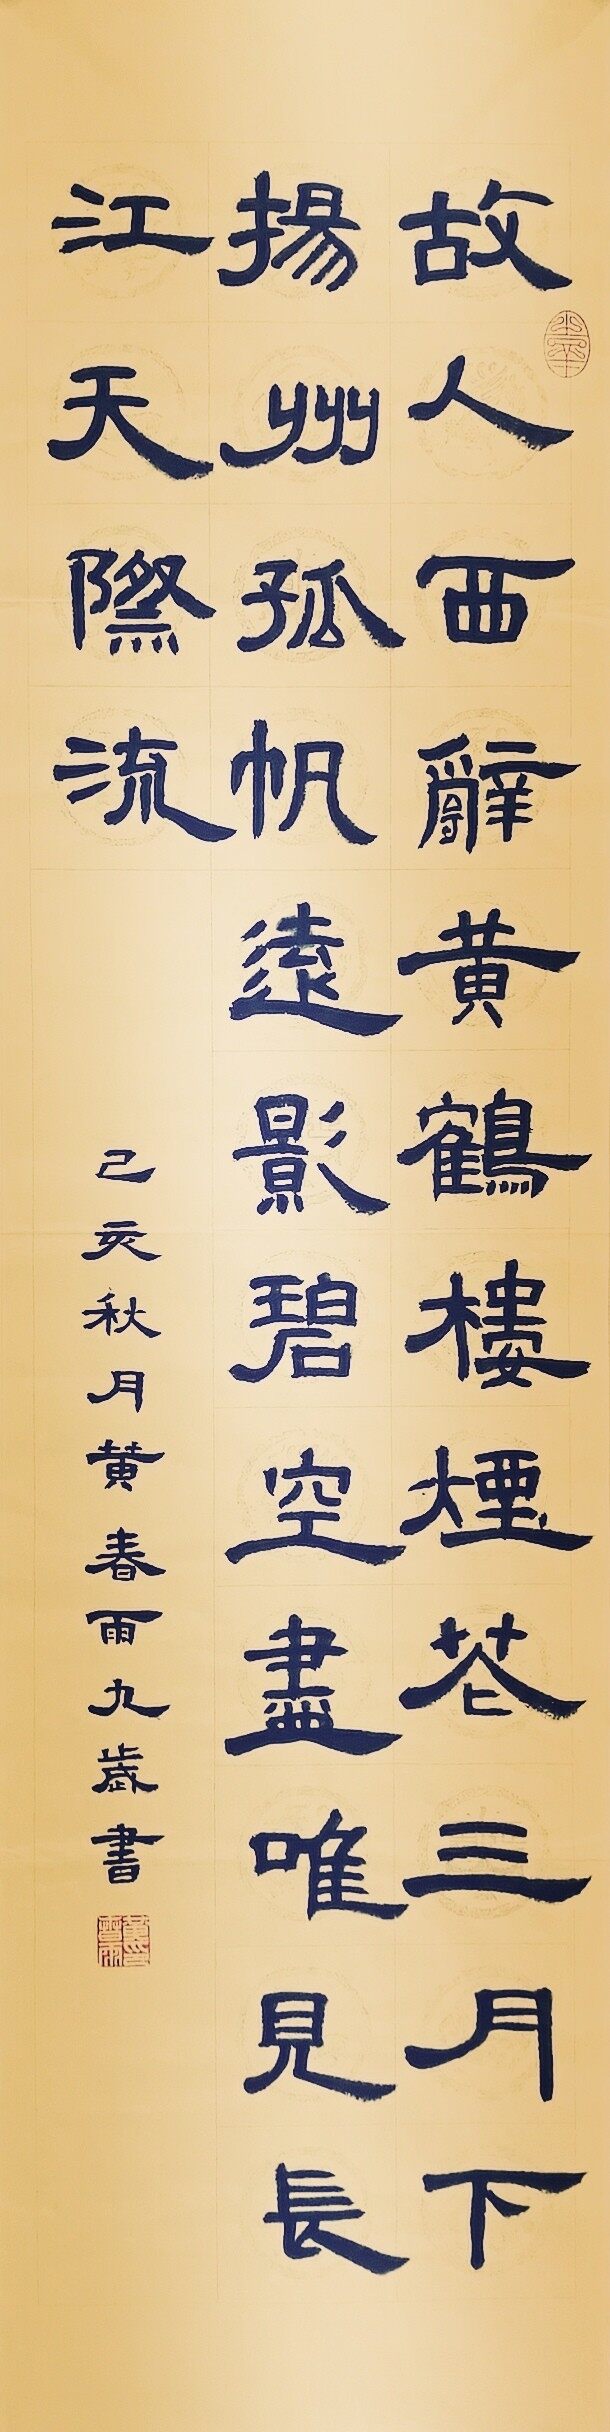 故人西辭黃鶴樓煙花三月下
揚州孤帆遠影碧空盡唯見長
江天際流
己亥秋月黃春雨九歲書